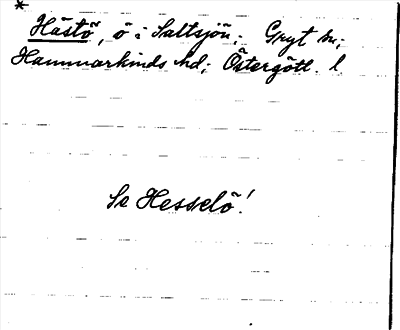 *
Hästö, ö i Saltsjön; Gryt sn;
Hammarkinds hd; Östergötl. l
Se Hesselö!